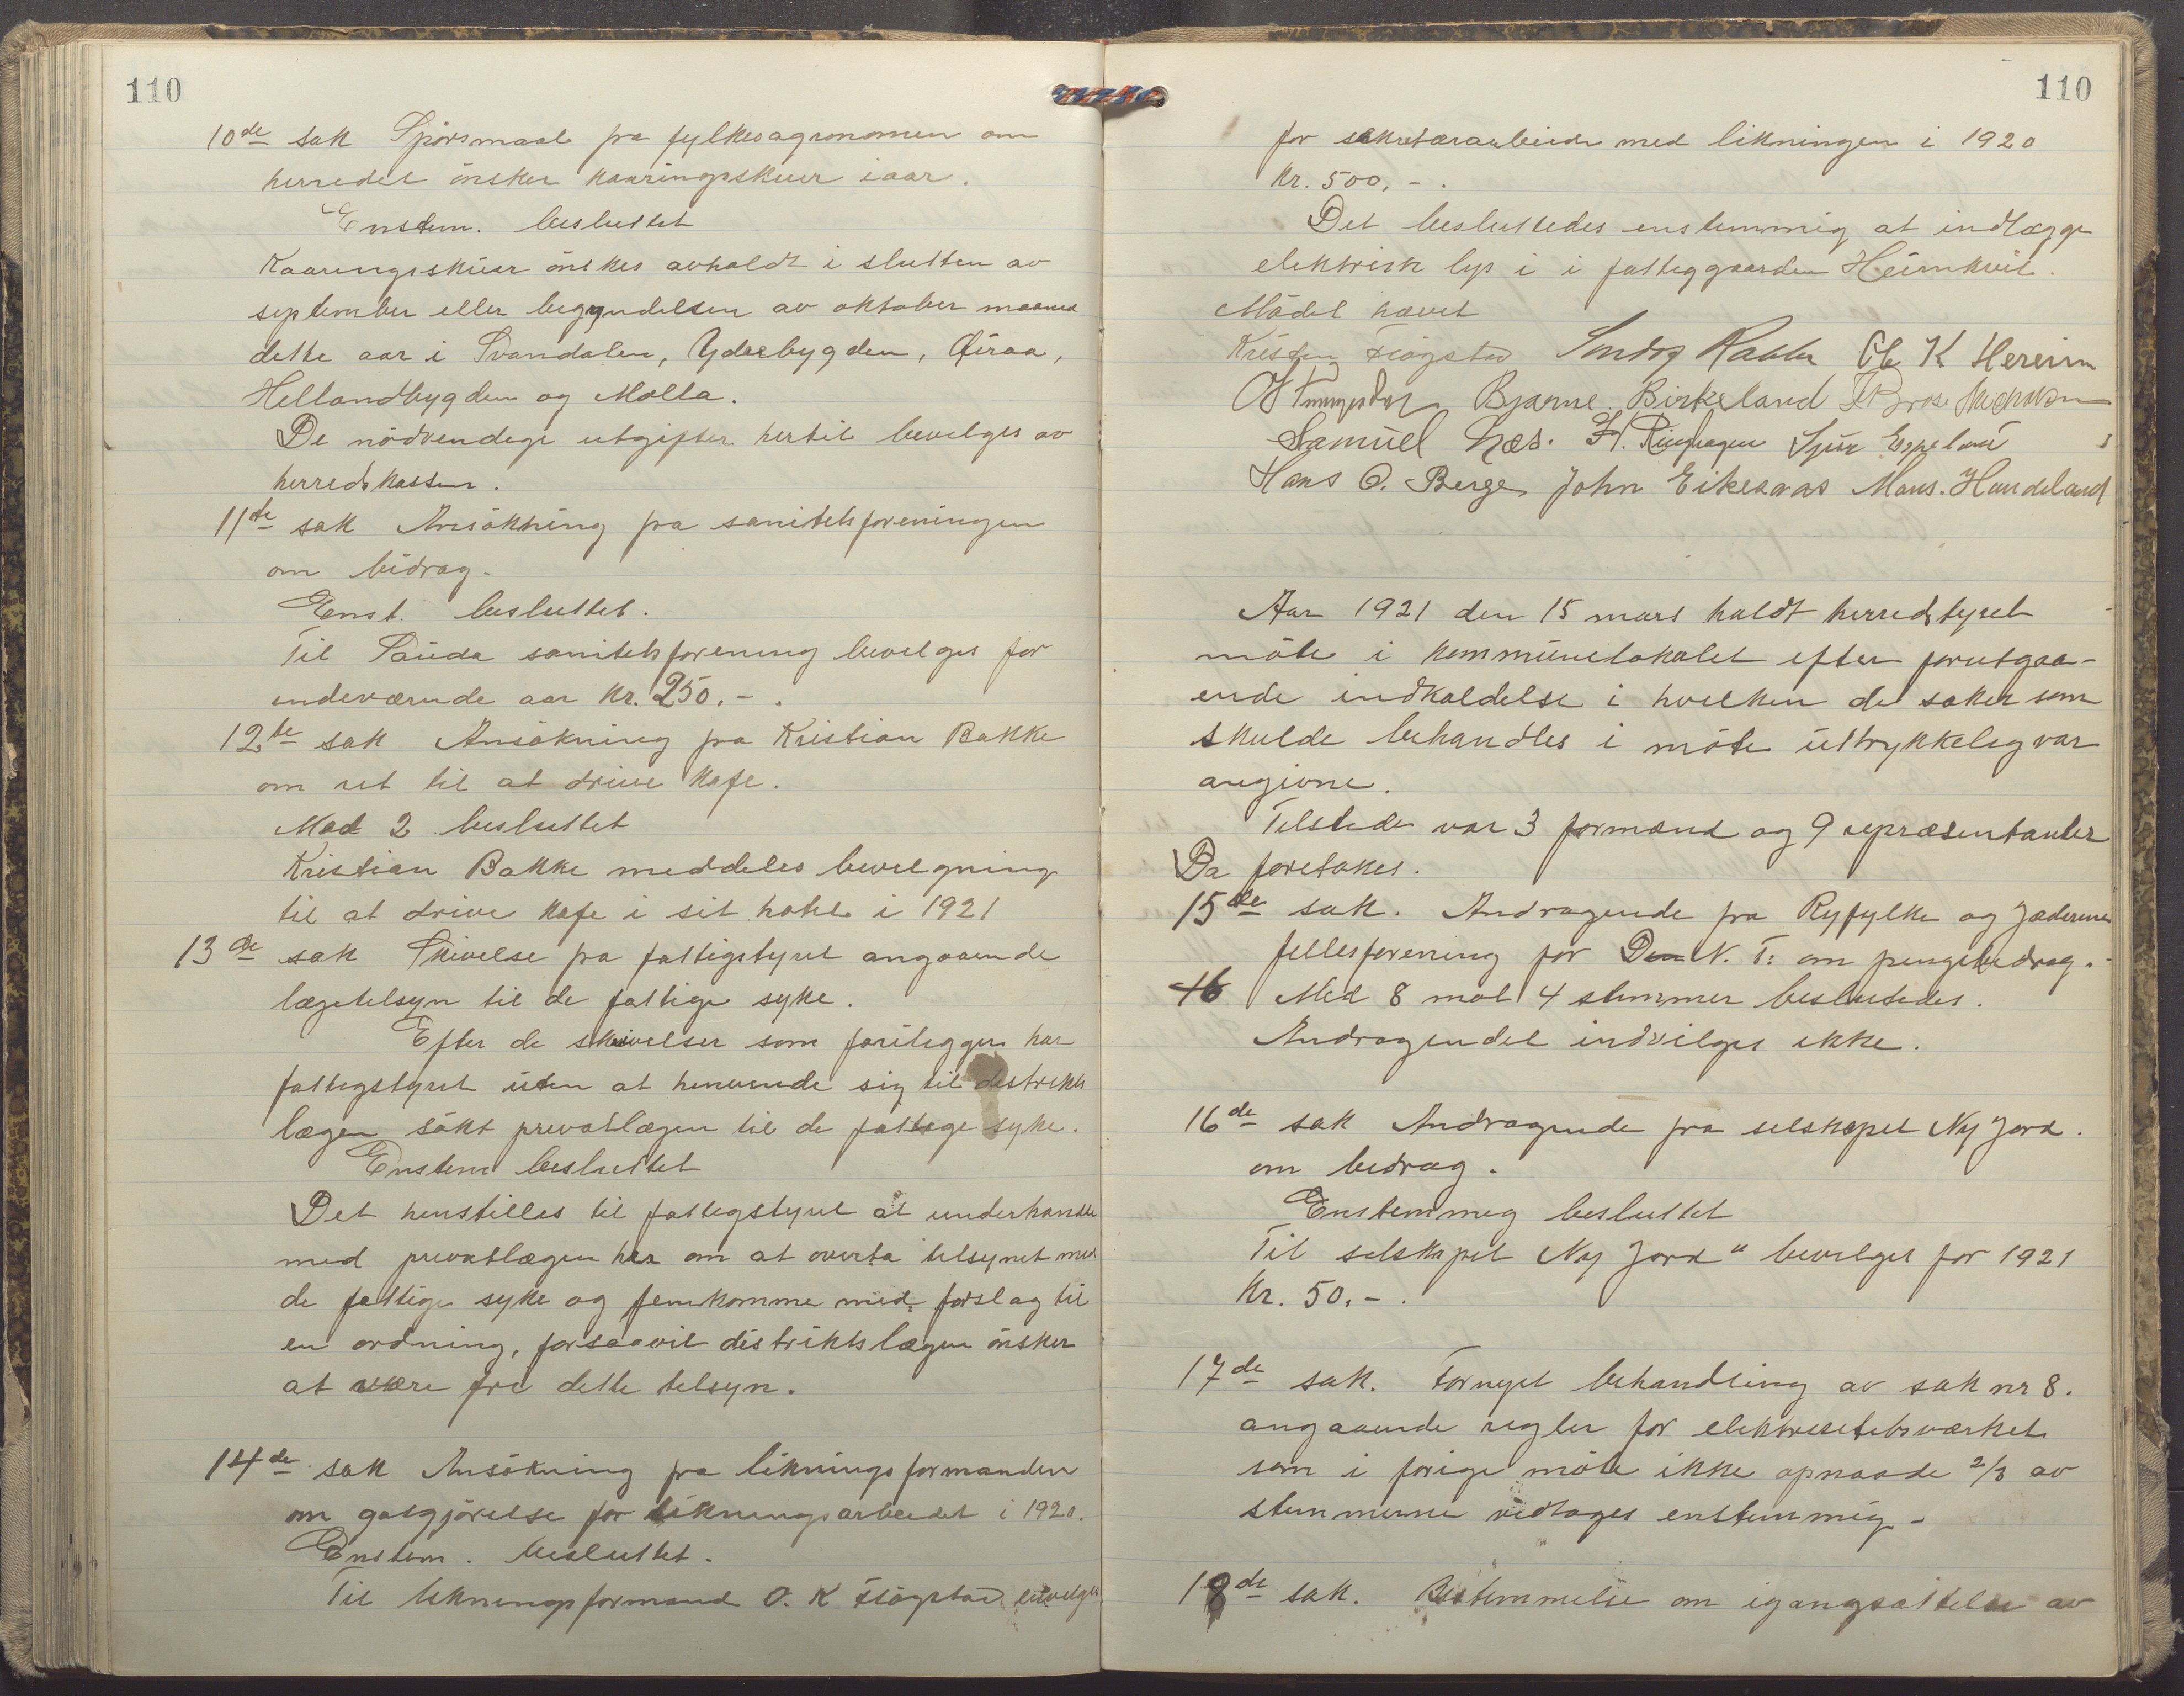 110
10de sak Spörsmaal fra fylkesagronomen om
herredet önsker kaaringsskuer iaar.
Enstem. besluttet
Kaaringsskuer önskes avholdt i slutten av
september eller begyndelsen av oktober maaned
dette aar i Svandalen, Yderbygden, Aaraa,
Hellandbygden og Molla.
De nödvendige utgifter hertil bevilges av
herredskassen.
11te sak Ansökning fra sanitetsforeningen
om bidrag.
Enst. besluttet.
Til Sauda sanitetsforening bevilges for
indeværende aar kr. 250.-.
12te sak Ansökning fra Kristian Bakke
om ret til at drive kafe.
Mod 2 besluttet
Kristian Bakke meddeles bevilgning
til at drive kafe i sit hotel i 1921
13de sak Skivelse fra fattigstyret angaaende
lægetilsyn til de fattige syke.
Efter de skrivelser som foreligger har
fattigstyret uten at henvende sig til distrikts
lægen sökt privatlægen til de fattige syke.
Enstem besluttet
Det henstilles til fattigstyret at underhandle
med privatlægen her om at overta tilsynet med
de fattige syke og fremkomme med forslag til
en ordning, forsaavit distriktslægen önsker
at være fri dette tilsyn.
14de sak Ansökning fra likningsformanden
om godtgjörelse for likningsarbeidet i 1920.
Enstem. besluttet.
Til likningsformand O. K Flögstad bevilges
110
for sekretærarbeide med likningen i 1920
Kr. 500,-.
Det besluttedes enstemmig at indlægge
elektrisk lys i i fattiggaarden Heimkvil.
Mödet hævet
Kristen Flögstad Sondre Rabbe Ole K Hereim
Bjarne Birkeland
Samuel Næs. H. Ringhagen Sjur Espeland
Hans O. Berge John Eikesaas Mans. Handeland
Aar 1921 den 15 mars holdt herredstyret
möte i kommunelokalet efter forutgaa-
ende indkaldelse i hvilken de saker som
skulde behandles i möte uttrykkelig var
angivne.
Tilstede var 3 formænd og 9 repræsentanter
Da foretokes.
15de sak. Andragende fra Ryfylke og Jæderens
fellesforening for Den N. T. om pengebidrag.
16 Med 8 mot 4 stemmer beslutedes.
Andragendet indvilges ikke.
16de sak Andragende fra selskapet Ny Jord.
om bidrag.
Enstemmig besluttet
Til selskapet Ny Jord" bevilges for 1921
Kr. 50.-.
17de sak. Fornyet behandling av sak nr 8.
angaaende regler for elektrisitetsværket
som i forige möte ikke opnaade 2/3 av
stemmerne vedtages enstemmig-
18de sak. Bestemmelse om igangsættelse av